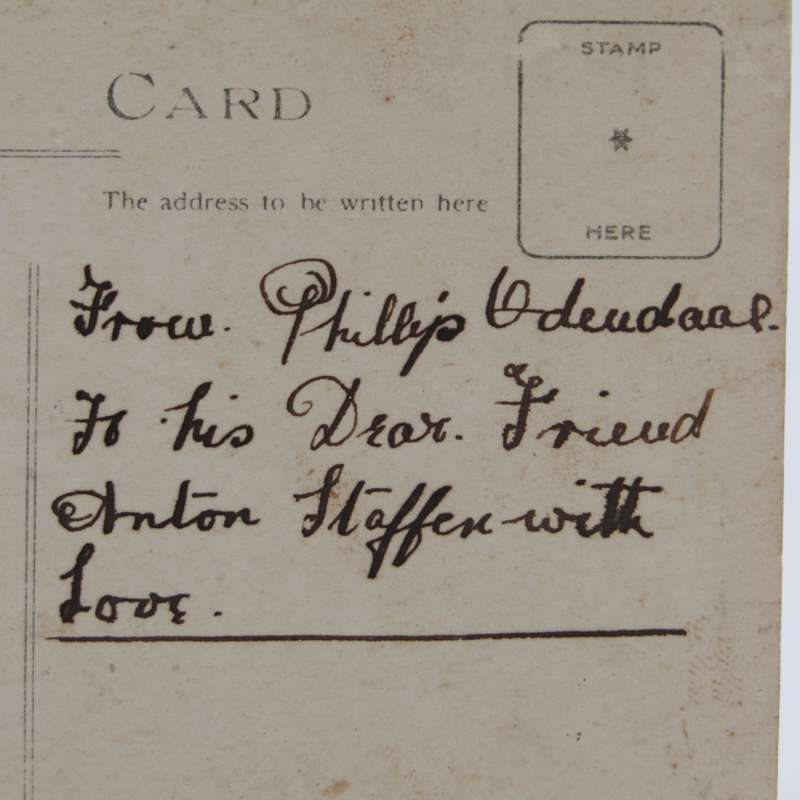 CARD
STAMP
HERE
The address to be written here
From. Phillip Odendaal.
To his Dear. Friend
Anton Staffen with
Love.